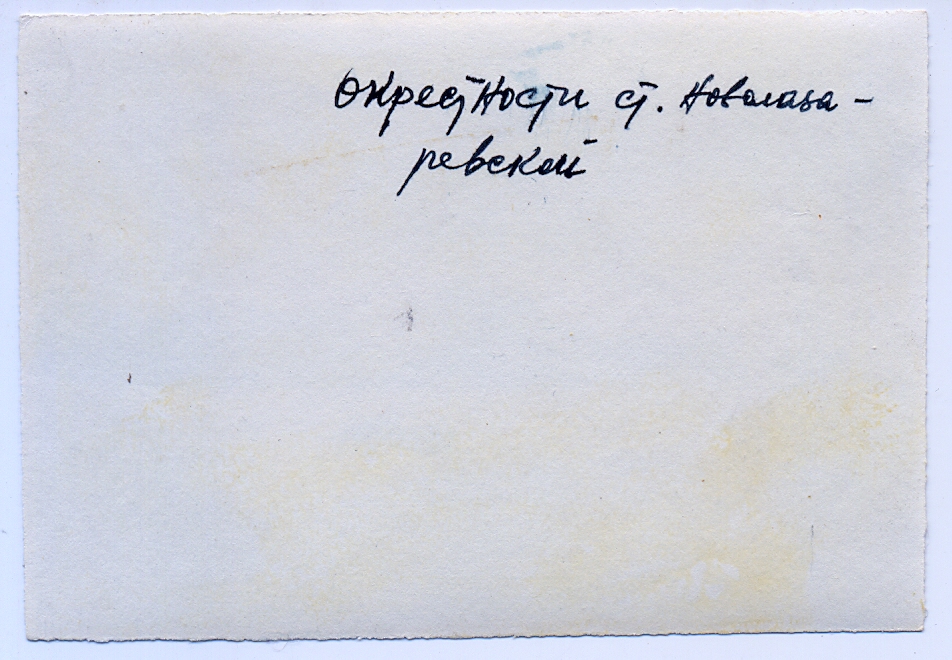 Окрестности ст. Новолаза-
ревской